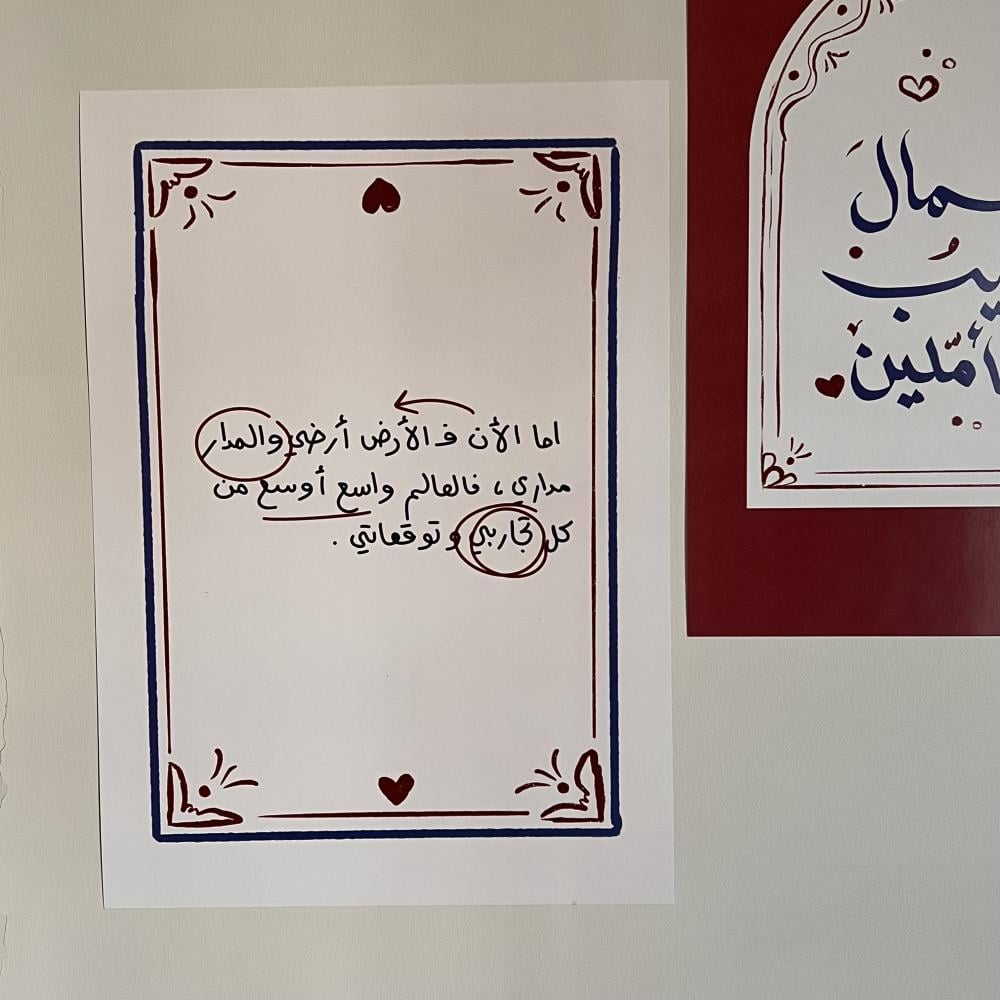 اما الأن ف الأرض أرضي والمدار
مداري ، فالعالم واسع أوسع من
كل تجاربي و توقعاتي .